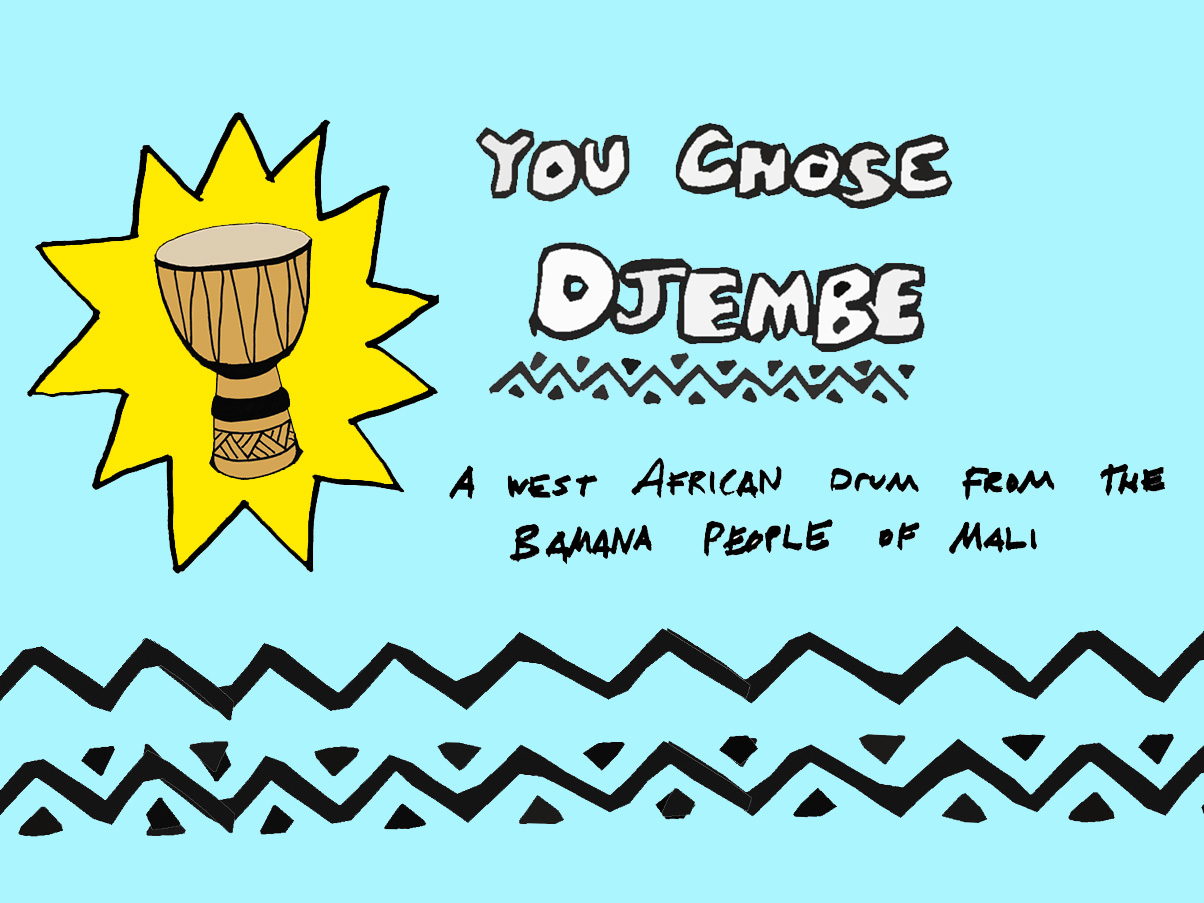 YOU CHOSE
DJEMBE
A WEST AFRICAN DRUM FROM THE
BAMANA PEOPLE OF MALI